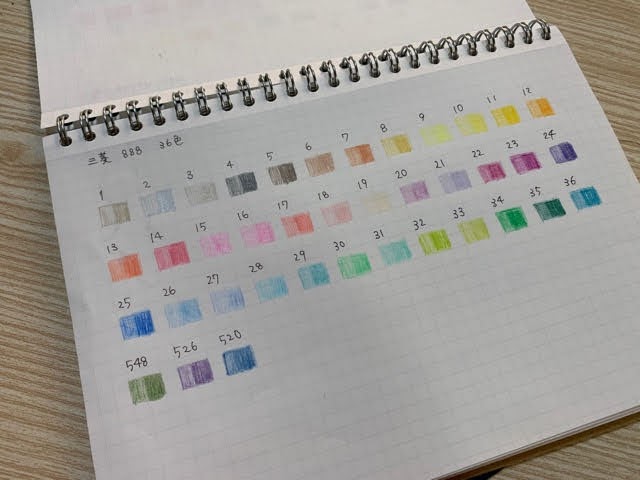 三菱 888 36色
1 2 3 4 5 6 7 8 9 10 11 12
13 14 15 16 17 18 19 20 21 22 23 24
25 26 27 28 29 30 31 32 33 34 35 36
548 526 520